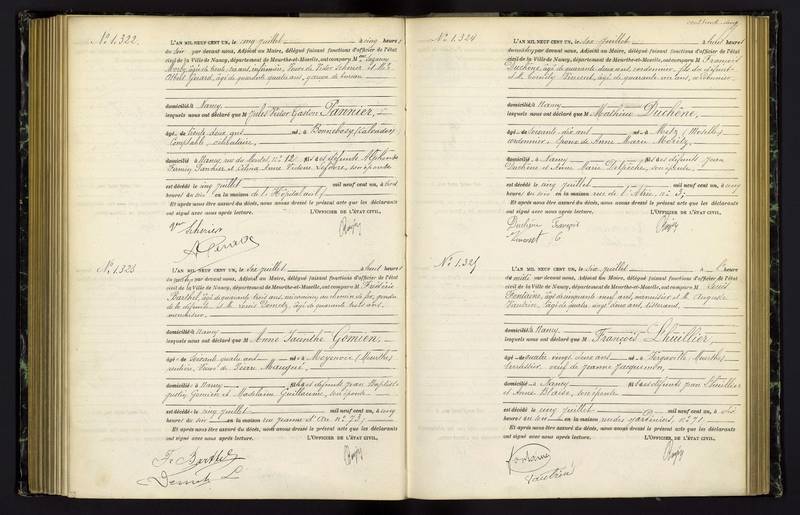 No 1.322.
L'AN MIL NEUF CENT UN, le cinq juillet à cinq heures
du soir par devant nous, Adjoint au Maire, délégué faisant fonctions d'officier de l'état
civil de la Ville de Nancy, département de Meurthe-et-Moselle, ont comparu M
âgé de quarante quatre ans, garçon de bureau
domiciliés à Nancy
lesquels nous ont déclaré que M Jules Victor Gaston Pannier,
âgé de trente deux ans né à Bonnebosq (Calvados)
Comptable, célibataire,
domicilié à Nancy, rue no 12 fils des défunts Alphonse
son épouse
est décédé le cinq juillet mil neuf cent un, à trois
heures du soir en la maison de l'Hôpital civil
Et après nous être assuré du décès, nous avons dressé le présent acte que les déclarants
ont signé avec nous après lecture. L'OFFICIER DE L'ÉTAT CIVIL,
No 1.323.
L'AN MIL NEUF CENT UN, le six juillet à huit heures
du matin par devant nous, Adjoint au Maire, délégué faisant fonctions d'officier de l'état
civil de la Ville de Nancy, département de Meurthe-et-Moselle, ont comparu M Frédéric
Barthel, âgé de quarante trois ans, mécanicien au chemin de fer, gendre
de la défunte, et M. âgé de quarante trois ans,
menuisier
domiciliés à Nancy
lesquels nous ont déclaré que M Anne Gomien,
âgée de soixante quatre ans née à Moyenvic (Meurthe)
veuve de Pierre
domiciliée à Nancy fille des défunts Jean Baptiste
Gomien et Madeleine Guillaume, son épouse
est décédée le cinq juillet mil neuf cent un, à cinq
heures du soir en la maison rue Jeanne d'Arc no 73,
Et après nous être assuré du décès, nous avons dressé le présent acte que les déclarants
ont signé avec nous après lecture. L'OFFICIER DE L'ÉTAT CIVIL,
Fr Barthel
No 1.324
L'AN MIL NEUF CENT UN, le six juillet à huit heures
du matin par devant nous, Adjoint au Maire, délégué faisant fonctions d'officier de l'état
civil de la Ville de Nancy, département de Meurthe-et-Moselle, ont comparu M François
Duchêne, âgé de quarante deux ans, cordonnier, fils du défunt
et M. âgé de quarante un ans, cordonnier
domiciliés à Nancy
lesquels nous ont déclaré que M Mathieu Duchêne,
âgé de soixante dix ans né à Metz (Moselle)
cordonnier, époux de Anne Marie
domicilié à Nancy fils des défunts Jean
Duchêne et Anne Marie Delpêche, son épouse
est décédé le cinq juillet mil neuf cent un, à cinq
heures du soir en la maison rue de no 3,
Et après nous être assuré du décès, nous avons dressé le présent acte que les déclarants
ont signé avec nous après lecture. L'OFFICIER DE L'ÉTAT CIVIL,
Duchêne François
No 1.325
L'AN MIL NEUF CENT UN, le six juillet à heures
du par devant nous, Adjoint au Maire, délégué faisant fonctions d'officier de l'état
civil de la Ville de Nancy, département de Meurthe-et-Moselle, ont comparu M Louis
Fontaine, âgé de cinquante neuf ans, menuisier et M. Auguste
Vautrin, âgé de quatre vingt deux ans,
domiciliés à Nancy
lesquels nous ont déclaré que M François Lhuillier,
âgé de quatre vingt deux ans né à (Meurthe)
veuf de Jeanne Jacquemin,
domicilié à Nancy fils des défunts Jean Lhuillier
et Anne Blaise, son épouse
est décédé le cinq juillet mil neuf cent un, à six
heures du soir en la maison rue no 71,
Et après nous être assuré du décès, nous avons dressé le présent acte que les déclarants
ont signé avec nous après lecture. L'OFFICIER DE L'ÉTAT CIVIL,
Fontaine
Vautrin